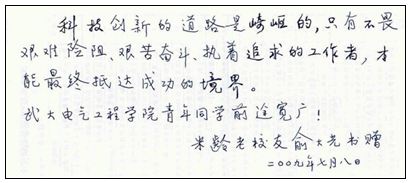 科技创新的道路是崎岖的,只有不畏
艰难险阻、艰苦奋斗、执着追求的工作者,才
能最终抵达成功的境界。
武大电气工程学院青年同学前途宽广!
米龄老校友俞大光书赠
二〇〇九年七月八日